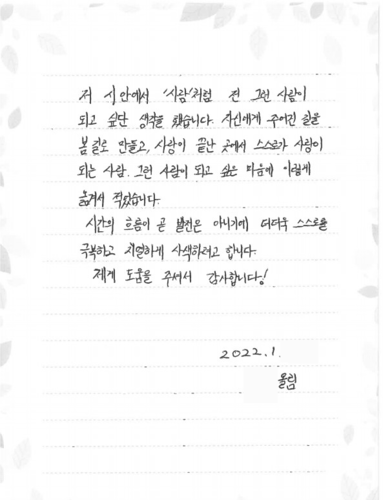 저 시 안에서 '사랑'처럼 전 그런 사람이
되고 싶단 생각을 했습니다. 자신에게 주어진 길을
봄 길로 만들고, 사랑이 끝난 곳에서 스스로가 사랑이
되는 사람. 그런 사람이 되고 싶은 마음에 이렇게
옮겨서 적었습니다.
시간의 흐름이 곧 발전은 아니기에 더더욱 스스로를
극복하고 치열하게 사색하려고 합니다.
제게 도움을 주셔서 감사합니다!
2022. 1.
올림